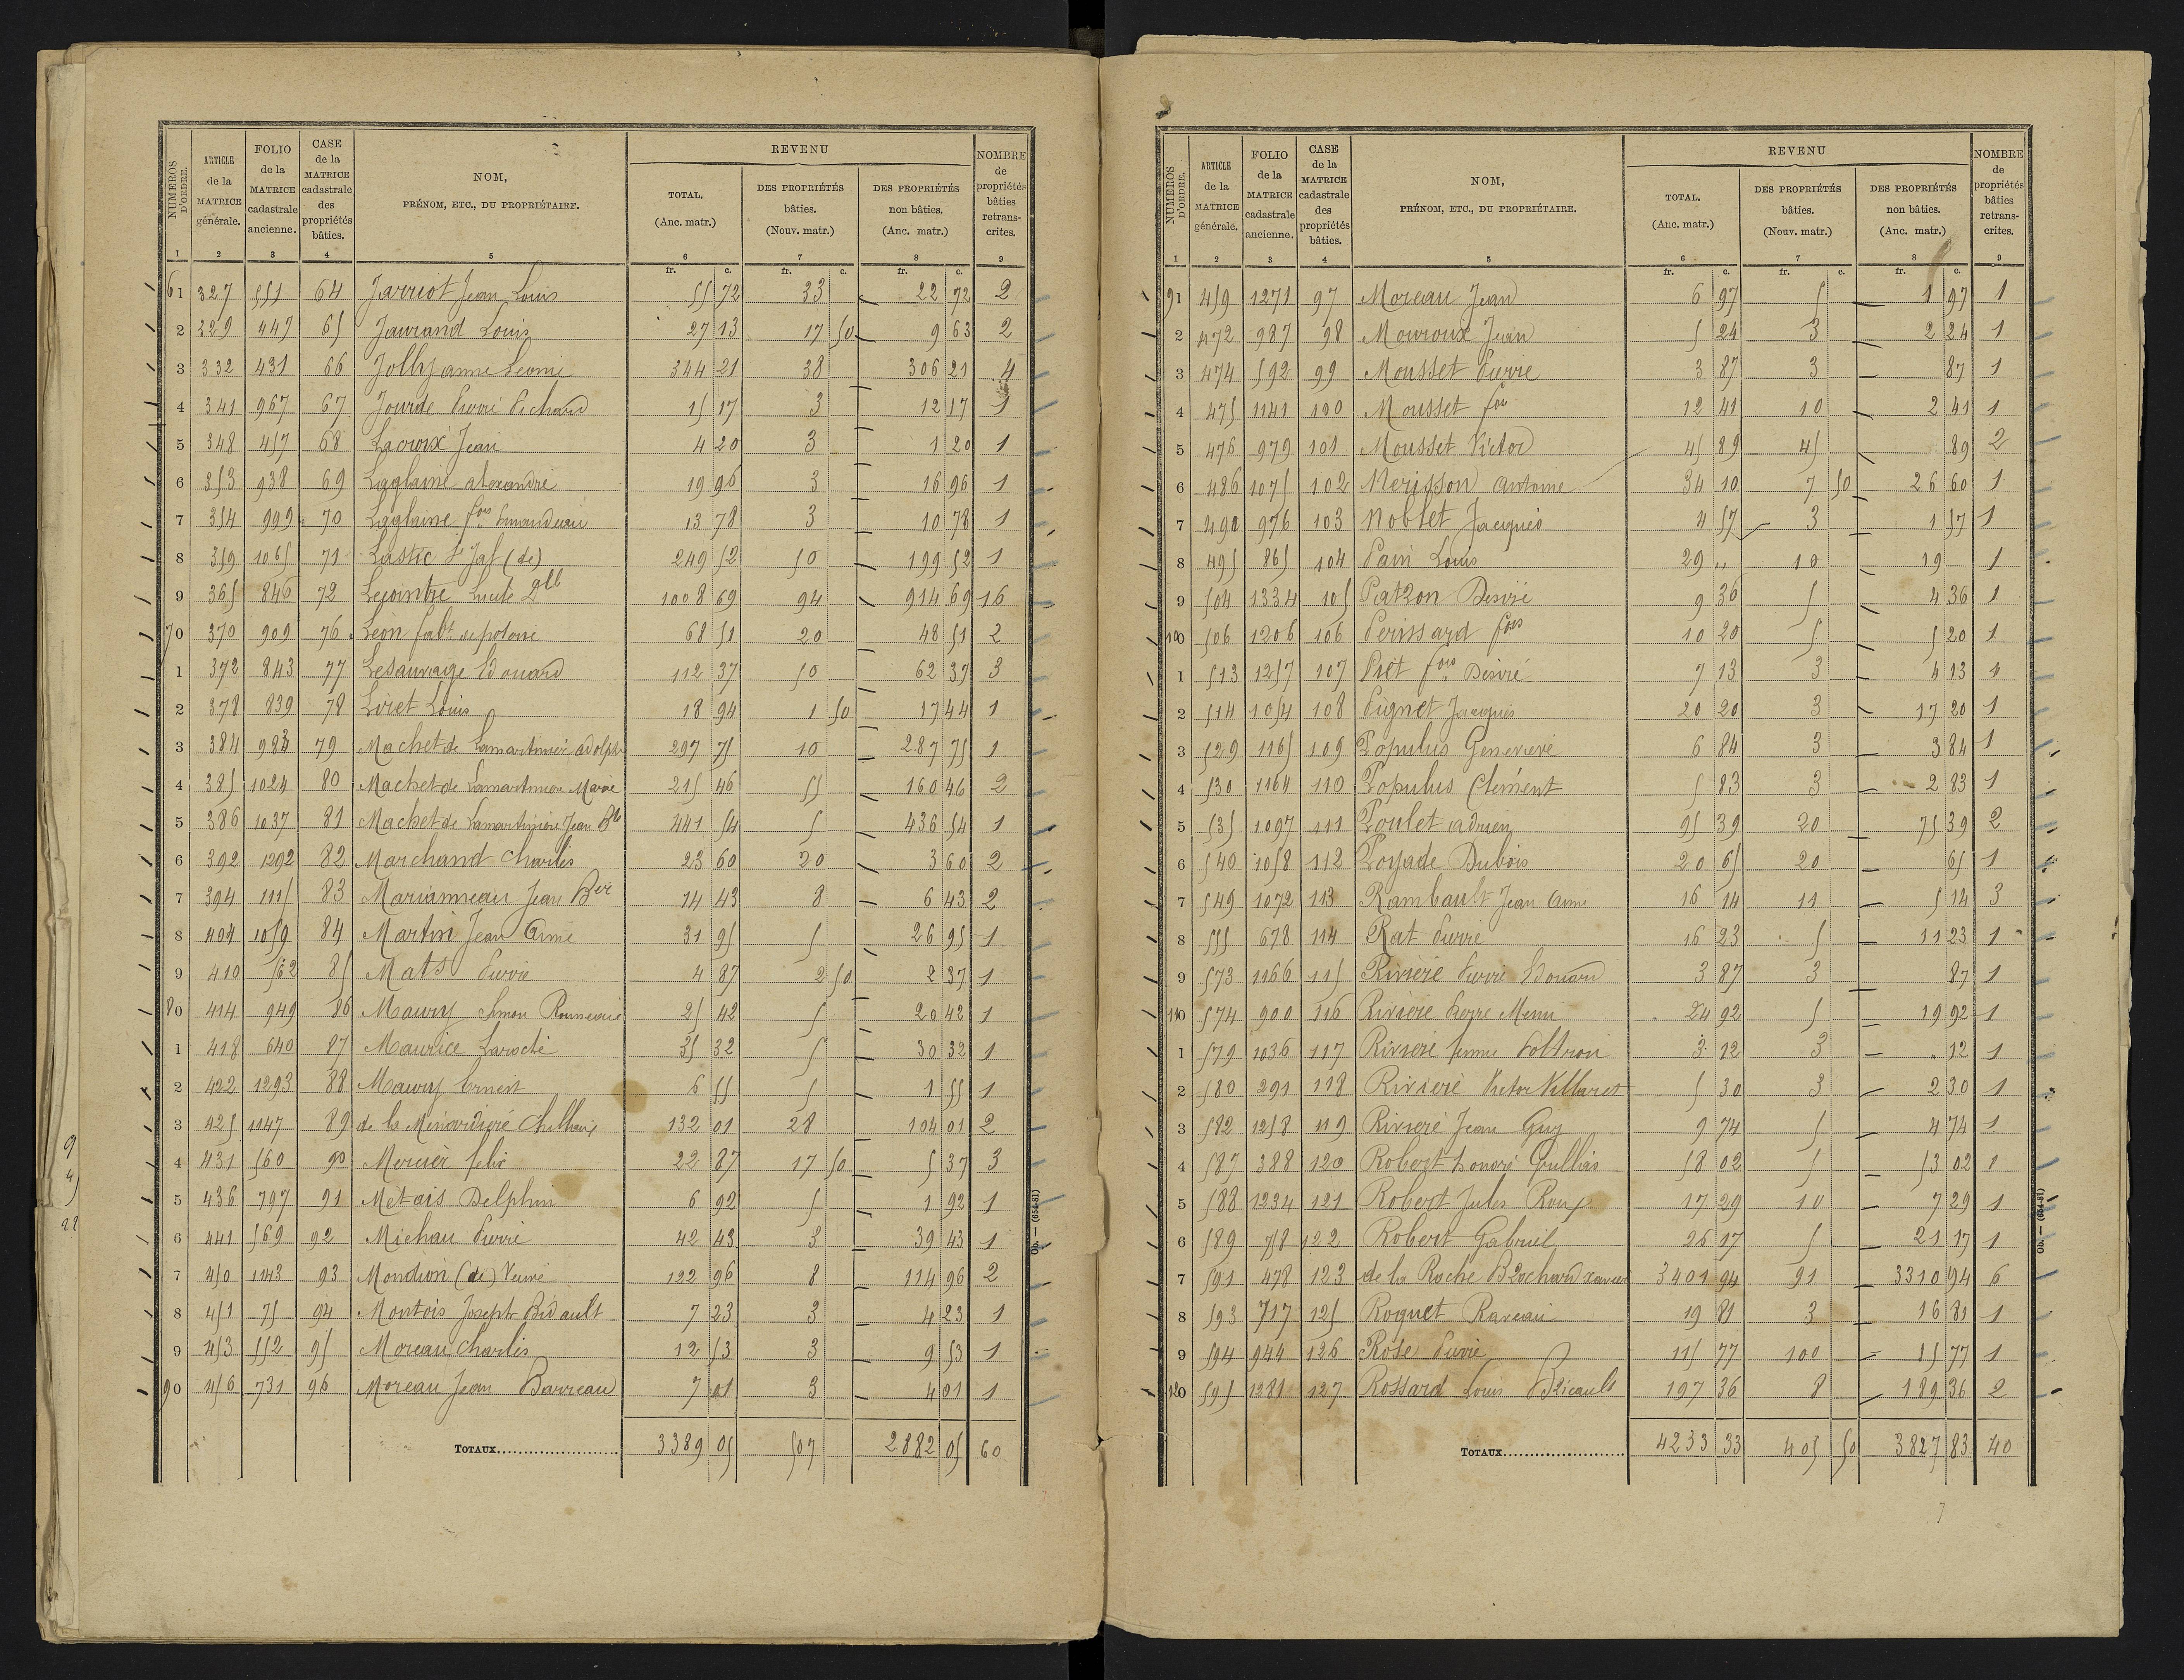 NUMÉROS D'ORDRE. | ARTICLE de la MATRICE générale. | FOLIO de la MATRICE cadastrale ancienne. | CASE de la MATRICE cadastrale des propriétés bâties. | NOM, PRÉNOM, ETC., DU PROPRIÉTAIRE. | REVENU TOTAL. (Anc. matr.) | DES PROPRIÉTÉS bâties. (Nouv. matr.) | DES PROPRIÉTÉS non bâties. (Anc. matr.) | NOMBRE de propriétés bâties retrans- crites.
1 2 3 4 5 6 7 8 9
fr. c. fr. c. fr. c.
61 327 551 64 Jarriot Jean Louis 55 72 33 22 72 2
2 329 447 65 Jaurand Louis 27 13 17 50 9 63 2
3 332 431 66 Jolly anne Leonie 344 21 38 306 21 4
4 341 967 67 Jourde Pierre Pichard 15 17 3 12 17 1
5 348 457 68 Lacroix Jean 4 20 3 1 20 1
6 353 938 69 Laglaine alexandre 19 96 3 16 96 1
7 354 999 70 Laglaine fois 13 78 3 10 78 1
8 359 1065 71 Lastic St Jal (de) 249 52 50 199 52 1
9 365 846 72 Lecointre Lucile Dlle 1008 69 94 914 69 16
70 370 909 76 Leon fabt de poterie 68 51 20 48 51 2
1 372 843 77 Lesauvage Edouard 112 37 50 62 37 3
2 378 839 78 Loret Louis 18 94 1 50 17 44 1
3 384 983 79 Machet de Lamartinière adolphe 297 75 10 287 75 1
4 385 1024 80 Machet de Lamartinière Marie 215 46 55 160 46 2
5 386 1037 81 Machet de Lamartinière Jean Bte 441 54 5 436 54 1
6 392 1292 82 Marchand Charles 23 60 20 3 60 2
7 394 1115 83 Marianneau Jean Bir 14 43 8 6 43 2
8 404 1059 84 Martin Jean Aimé 31 95 5 26 95 1
9 410 562 85 Mats Pierre 4 87 2 50 2 37 1
80 414 949 86 Maury Simon 25 42 5 20 42 1
1 418 640 87 Maurice Laroche 35 32 5 30 32 1
2 422 1293 88 Maury Ernest 6 55 5 1 55 1
3 425 1147 89 de la Ménardière 132 01 28 104 01 2
4 431 560 90 Mercier felix 22 87 17 50 5 37 3
5 436 797 91 Métais Delphin 6 92 5 1 92 1
6 441 569 92 Michau Pierre 42 43 3 39 43 1
7 450 1143 93 Mondion (de) Veuve 122 96 8 114 96 2
8 451 75 94 Montois Joseph Bidault 7 23 3 4 23 1
9 453 552 95 Moreau Charles 12 53 3 9 53 1
90 456 731 96 Moreau Jean Barreau 7 01 3 4 01 1
TOTAUX 3389 05 507 2882 05 60
Ob. — (654-81)
9
4
22
NUMÉROS D'ORDRE. | ARTICLE de la MATRICE générale. | FOLIO de la MATRICE cadastrale ancienne. | CASE de la MATRICE cadastrale des propriétés bâties. | NOM, PRÉNOM, ETC., DU PROPRIÉTAIRE. | REVENU TOTAL. (Anc. matr.) | DES PROPRIÉTÉS bâties. (Nouv. matr.) | DES PROPRIÉTÉS non bâties. (Anc. matr.) | NOMBRE de propriétés bâties retrans- crites.
1 2 3 4 5 6 7 8 9
fr. c. fr. c. fr. c.
91 459 1271 97 Moreau Jean 6 97 5 1 97 1
2 472 987 98 Mouroux Jean 5 24 3 2 24 1
3 474 592 99 Mousset Pierre 3 87 3 87 1
4 475 1141 100 Mousset fois 12 41 10 2 41 1
5 476 979 101 Mousset Victor 45 89 45 89 2
6 486 1075 102 Nerisson Antoine 34 10 7 50 26 60 1
7 490 976 103 Noblet Jacques 4 57 3 1 57 1
8 495 865 104 Pain Louis 29 " 10 19 1
9 504 1334 105 Patzon Desiré 9 36 5 4 36 1
100 506 1206 106 Perissard fois 10 20 5 5 20 1
1 513 1257 107 Piet fois Desiré 7 13 3 4 13 1
2 514 1054 108 Pignet Jacques 20 20 3 17 20 1
3 529 1165 109 Populus Genevieve 6 84 3 3 84 1
4 530 1164 110 Populus Clément 5 83 3 2 83 1
5 535 1097 111 Poulet adrien 95 39 20 75 39 2
6 540 1058 112 Poyade Dubois 20 65 20 65 1
7 549 1072 113 Rambault Jean Aimé 16 14 11 5 14 3
8 555 678 114 Rat Pierre 16 23 5 11 23 1
9 573 1166 115 Rivière Pierre Edouard 3 87 3 87 1
110 574 900 116 Rivière Pierre Menu 24 92 5 19 92 1
1 579 1036 117 Rivière femme Poltron 3 12 3 " 12 1
2 580 291 118 Rivière Victor Villaret 5 30 3 2 30 1
3 582 1258 119 Rivière Jean Guy 9 74 5 4 74 1
4 587 388 120 Robert honoré 58 02 5 53 02 1
5 588 1234 121 Robert Jules Roux 17 29 10 7 29 1
6 589 758 122 Robert Gabriel 26 17 5 21 17 1
7 591 478 123 de la Roche Brochard xavier 3401 94 91 3310 94 6
8 593 717 125 Roguet Raveau 19 81 3 16 81 1
9 594 944 126 Rose Pierre 115 77 100 15 77 1
120 595 1281 127 Rossard Louis Bricault 197 36 8 189 36 2
TOTAUX 4233 33 405 50 3827 83 40
Ob. — (654-81)
7